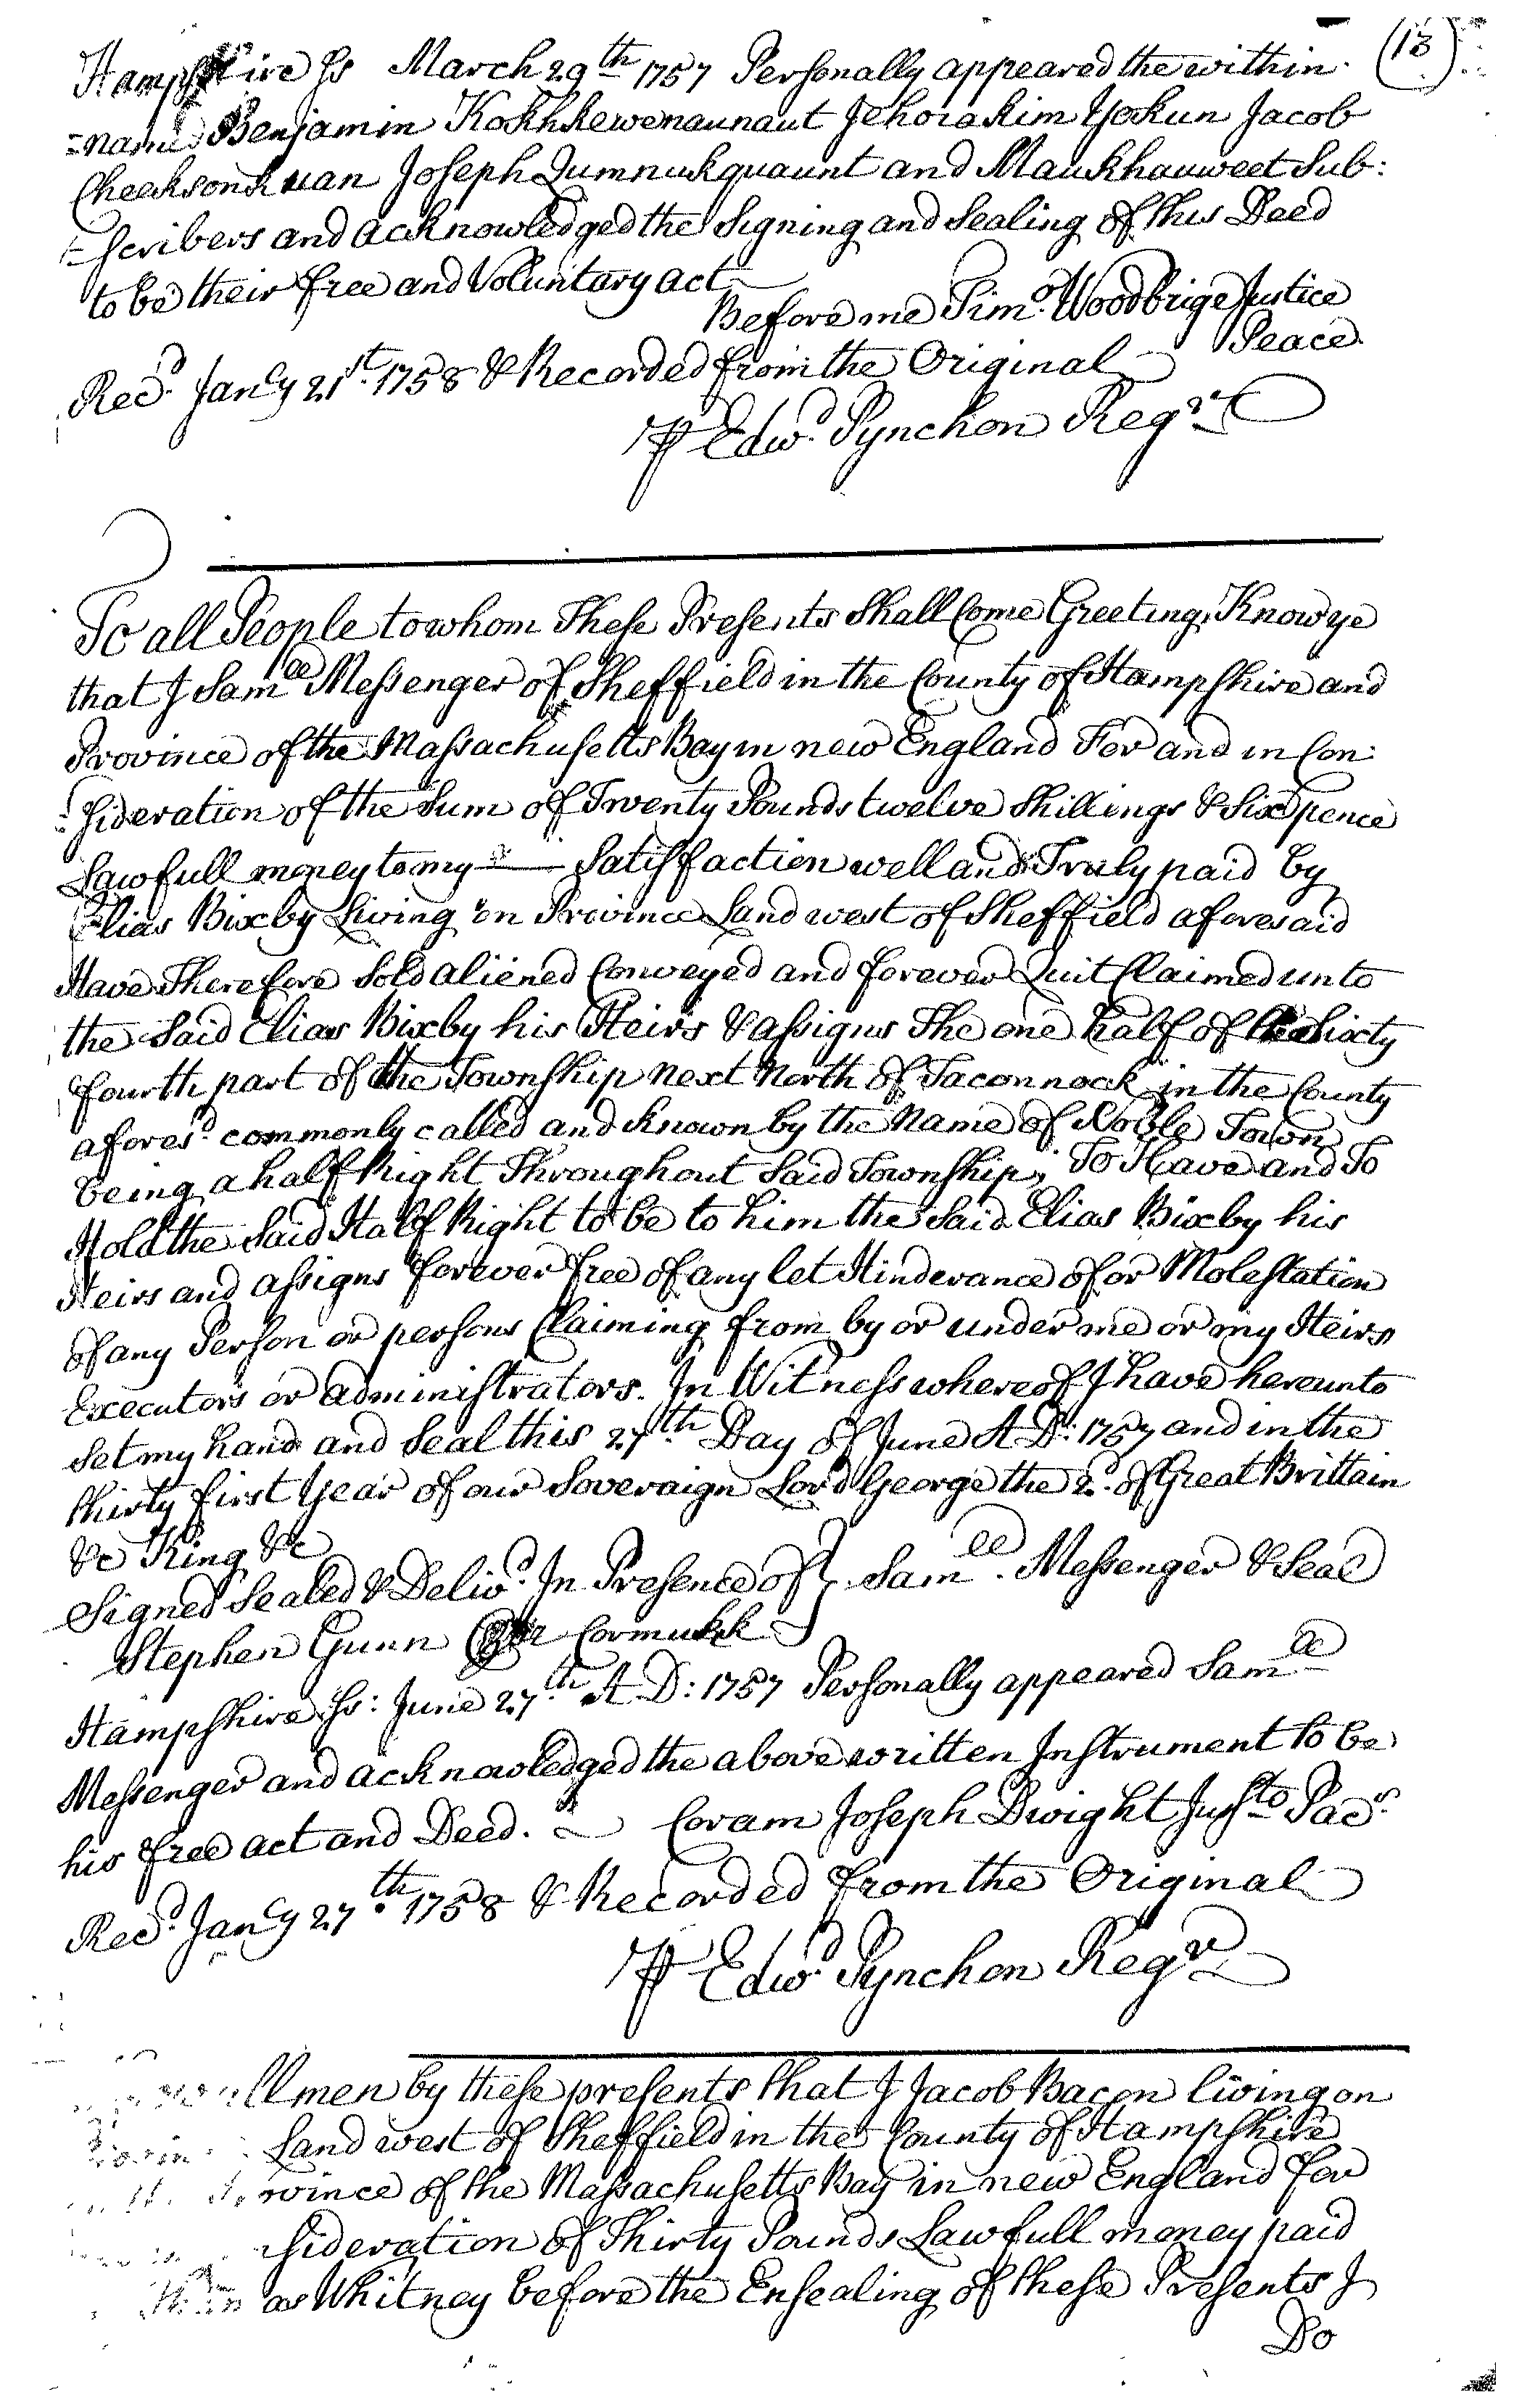 (13)
Hampshire ss March 29th 1757 Personally appeared the within
=named Benjamin Kokhkewenaunaut Jehoiakim Yokun Jacob
Cheeksonkuan Joseph Qumnukquaunt and Maukhauweet Sub:
=scribers and acknowledged the Signing and Sealing of this Deed
to be their free and Voluntary act
Before me Timo. Woodbrige Justice
Peace
Recd. Jany 21st. 1758 & Recorded from the Original
⅌ Edwd. Pynchon Regr
To all People to whom These Presents Shall Come Greeting, Know ye
that I Samll Messenger of Sheffield in the County of Hampshire and
Province of the Massachusetts Bay in new England For and in Con:
:sideration of the Sum of Twenty Pounds twelve Shillings & Six pence
Lawfull money to my Satisfaction well and Truly paid by
Elias Bixby Living on Province Land west of Sheffield aforesaid
Have Therefore Sold aliened Conveyed and forever Quit Claimed unto
the Said Elias Bixby his Heirs & assigns The one half of the Sixty
fourth part of the Township next North of Taconnock in the County
aforesd. commonly called and known by the Name of Noble Town
being a half Right Throughout Said Township, To Have and To
Hold the Said Half Right to be to him the Said Elias Bixby his
Heirs and assigns forever free of any let Hinderance of or Molestation
of any Person or persons Claiming from by or under me or my Heirs
Executors or administrators. In Witness whereof I have hereunto
set my hand and Seal this 27th Day of June A D: 1757 and in the
thirty first Year of our Soveraign Lord George the 2d. of Great Brittain
&c King &c
Signed Sealed & Delivd. In Presence of } Samll. Messenger & Seal
Stephen Gunn Cormukk
Hampshire ss: June 27th A D: 1757 Personally appeared Samll
Messenger and acknowledged the above written Instrument to be
his free act and Deed. Coram Joseph Dwight Justo Pacs.
Recd. Jany 27th. 1758 & Recorded from the Original
⅌ Edwd. Pynchon Regr
all men by these presents that I Jacob Bacon living on
Land west of Sheffield in the County of Hampshire
Province of the Massachusetts Bay in new England for
sideration of Thirty Pounds Lawfull money paid
as Whitney before the Ensealing of these Presents I
Do